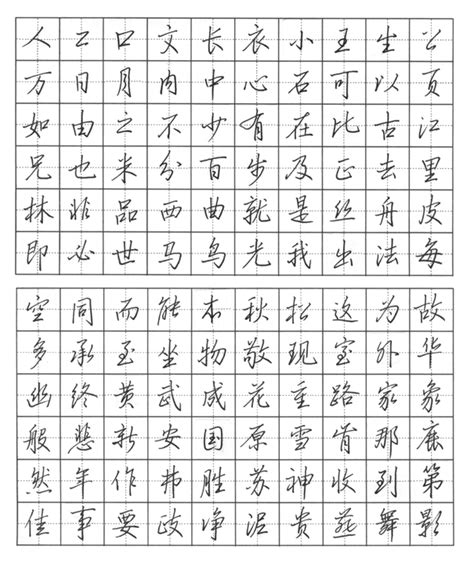 人工口文长衣小王生公
万日月肉中心石可以页
如由之不少有在比古江
兄也米分百步及正去里
林非品西曲就是丝舟皮
即必世马鸟光我出法每
空同而能本秋松这为故
多承至坐物敬现室外华
幽终黄武咸花重路家象
般悲新安国原雪肯那鹿
然年作弗胜苏神收到第
佳事要政净泥贵燕舞影